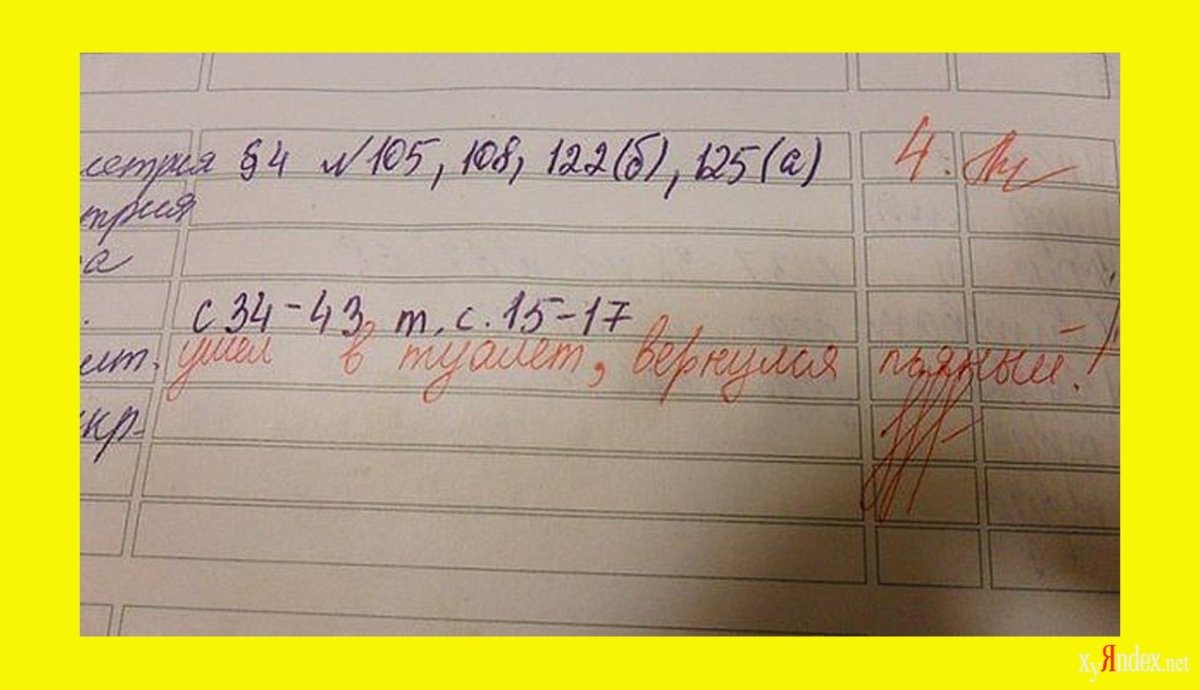 сетрия §4 №105, 108, 122(б), 125(а) 4.
трия
а
с 34-43, т, с. 15-17
ушел в туалет, вернулся пьяный!
кр-
xyЯndex.net